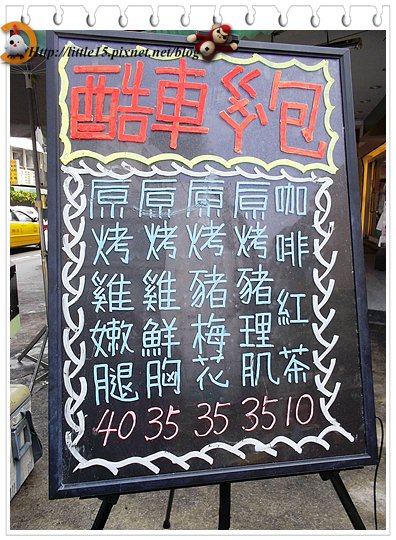 Http://little15.pixnet.net/blog
酷車 包
原烤雞嫩腿 40
原烤雞鮮胸 35
原烤豬梅花 35
原烤豬理肌 35
咖啡紅茶 10